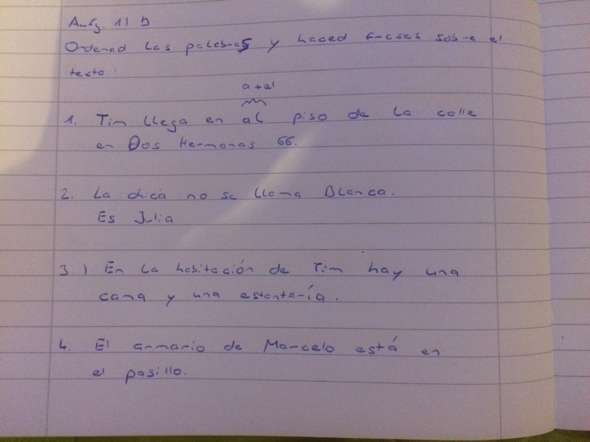 Aufg 11 b
Ordenad las palabras y haced frases sobre el
texto
a + el
1. Tim llega en al piso de la calle
en Dos Hermanas 66.
2. La chica no se llama Blanca.
Es Julia
3.) En la habitación de Tim hay una
cama y una estantería.
4. El armario de Marcelo está en
el pasillo.